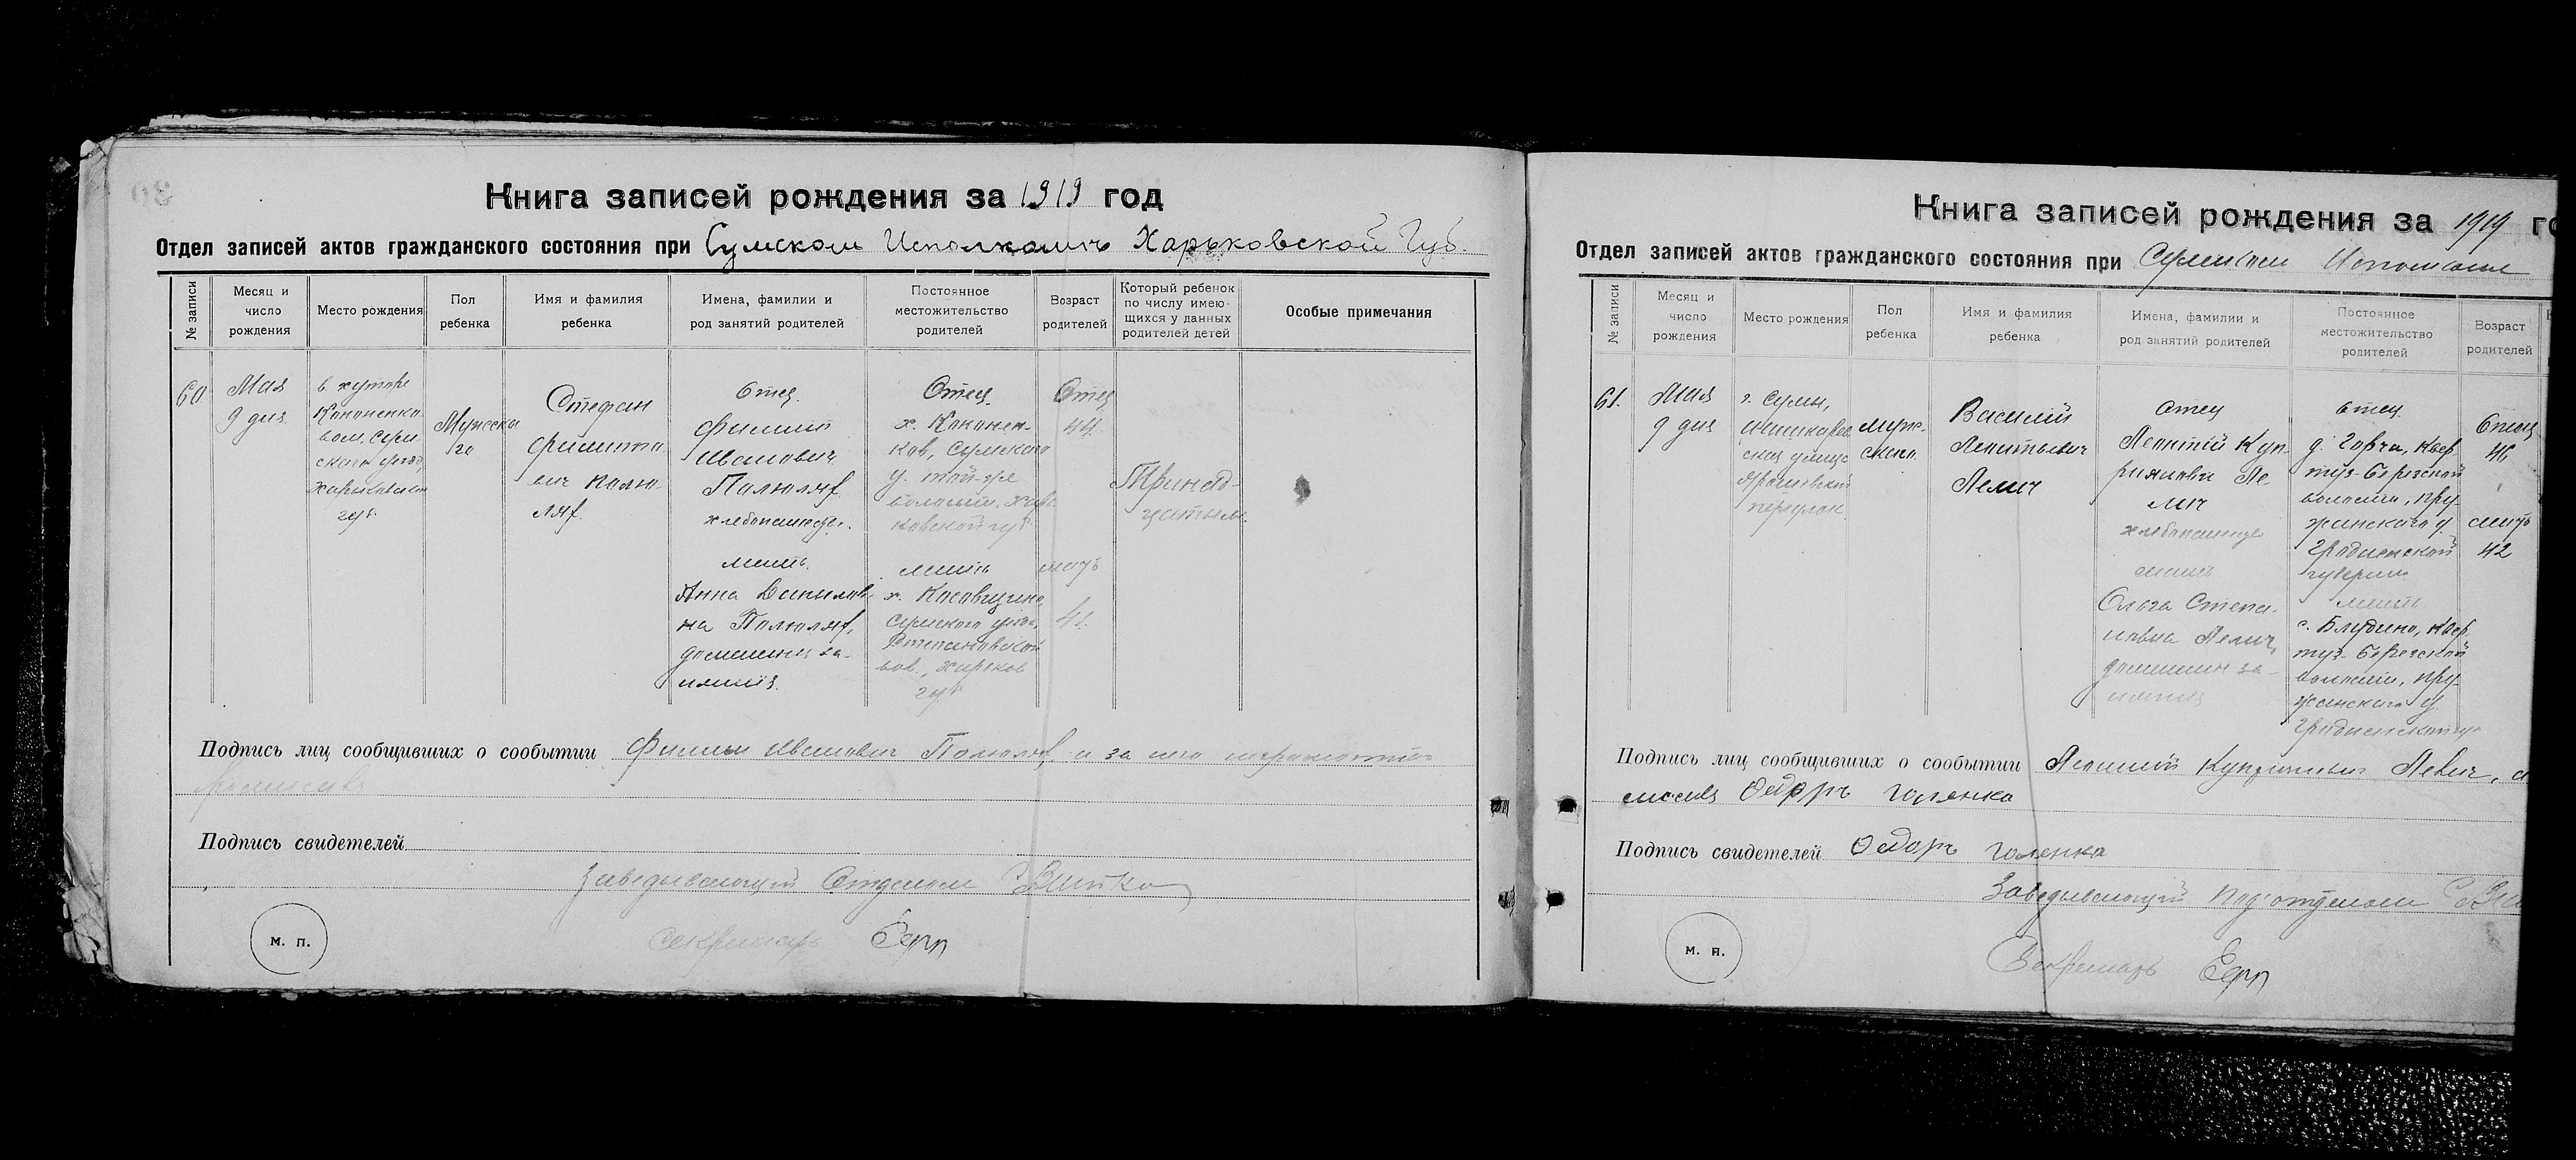 Книга записей рождения за 1919 год
Отдел записей актов гражданского состояния при Сумском Исполкомъ Харьковской Губ.
№ записи
Месяц и
число
рождения
Место рождения
Пол
ребенка
Имя и фамилия
ребенка
Имена, фамилии и
род занятий родителей
Постоянное
местожительство
родителей
Возраст
родителей
Который ребенок
по числу имею-
щихся у данных
родителей детей
Особые примечания
60
Мая
9 дня
в хуторе
Кононенко
вом, Сум
ского уезда,
Харьковской
губ.
Мужско
го
Стефан
Филиппо
вич Полю
лях
Отец
Филипп
Иванович
Полюлях
хлебопашец.
мать.
Анна Данилов
на Полюлях,
домашния за-
нятия.
Отец
х. Кононен-
ков, Сумского
у. той-же
волости, Харь
ковской губ.
мать
х. Косовщина,
Сумского уезда,
Степановской
вол., Харьков
губ.
Отец
44.
мать
41.
Тринад-
цатым.
Подпись лиц сообщивших о сообытии Филипп Иванович Полюлях а за него неграмотного
Подпись свидетелей
Заведывающий Отделом
Секретарь
м. п.
Книга записей рождения за 1919 го
Отдел записей актов гражданского состояния при Сумском Исполкоме
№ записи
Месяц и
число
рождения
Место рождения
Пол
ребенка
Имя и фамилия
ребенка
Имена, фамилии и
род занятий родителей
Постоянное
местожительство
родителей
Возраст
родителей
61.
Мая
9 дня
г. Сумы,
ская улица
переулок.
муж-
ского.
Василий
Леонтьевич
Лемич
Отец
Леонтий Куп-
риянович Ле-
мич
хлебопашец
мать
Ольга Степа-
новна Лемич,
домашния за-
нятия
Отец
д. Горча, Квер
туз-Березской
волости, Пру-
жанского у.
Гродненской
губернии
мать
с. Блудино, Квер
туз-Березской
волости, Пру-
жанского у.
Отец
46
мать
42
Подпись лиц сообщивших о сообытии Леонтий Куприянович
Федоръ Голенко
Подпись свидетелей Федоръ Голенко
Заведывающий Подотделом
Секретарь
м. п.